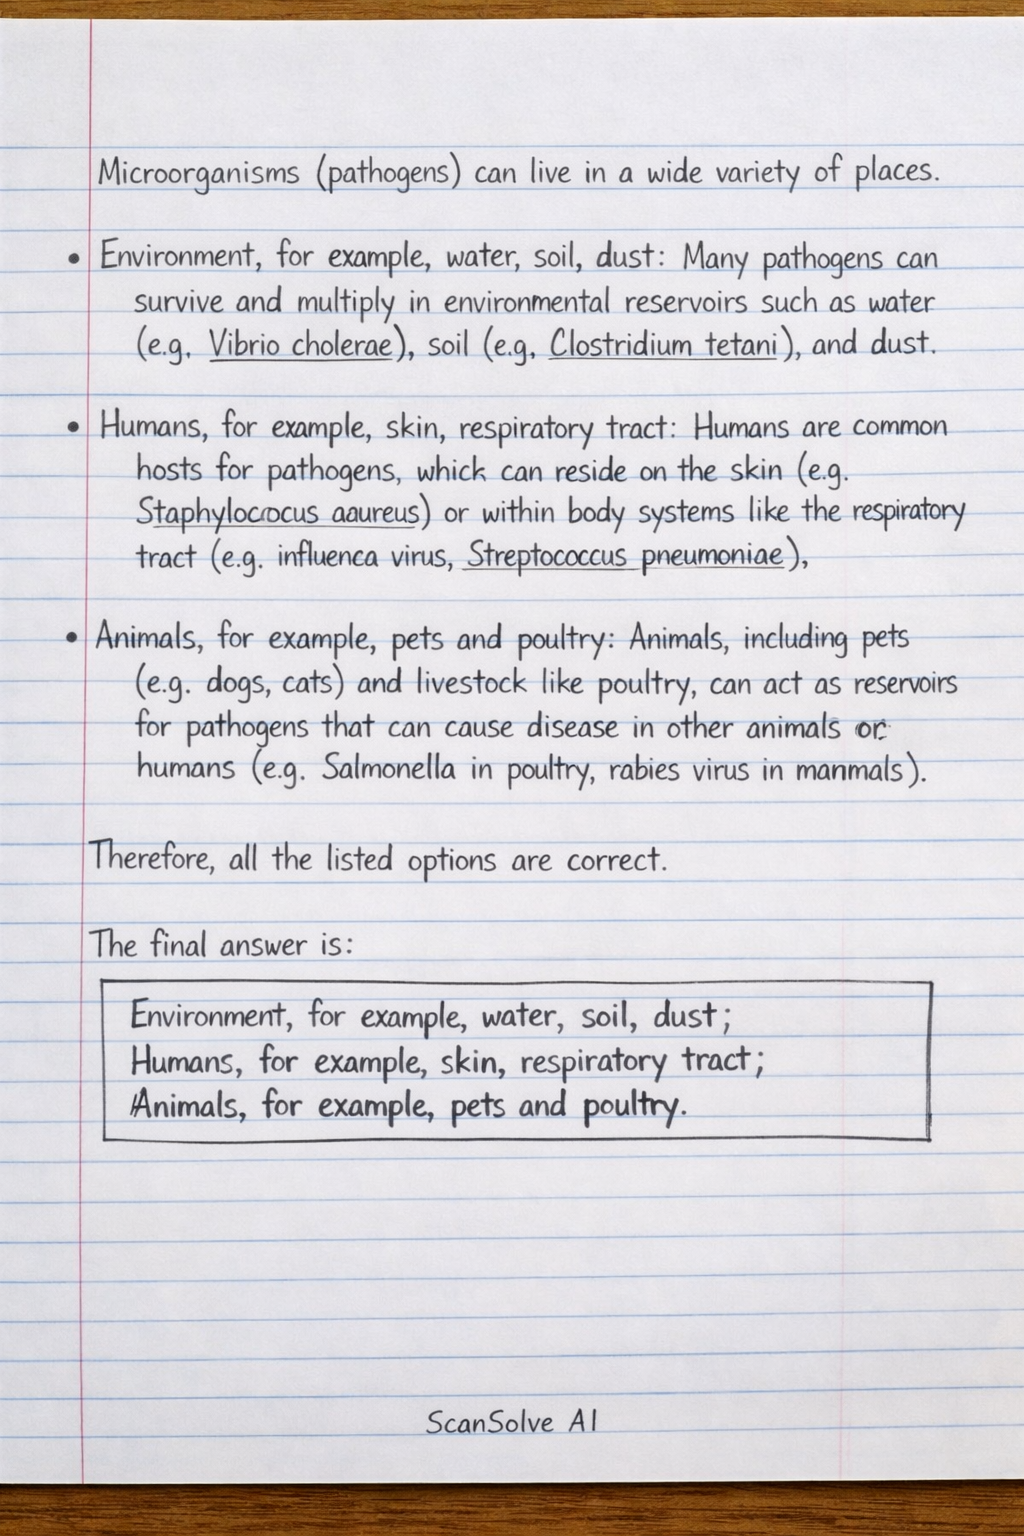 Microorganisms (pathogens) can live in a wide variety of places.
• Environment, for example, water, soil, dust: Many pathogens can
survive and multiply in environmental reservoirs such as water
(e.g. Vibrio cholerae), soil (e.g. Clostridium tetani), and dust.
• Humans, for example, skin, respiratory tract: Humans are common
hosts for pathogens, which can reside on the skin (e.g.
Staphylococus aaureus) or within body systems like the respiratory
tract (e.g. influenca virus, Streptococcus pneumoniae),
• Animals, for example, pets and poultry: Animals, including pets
(e.g. dogs, cats) and livestock like poultry, can act as reservoirs
for pathogens that can cause disease in other animals or
humans (e.g. Salmonella in poultry, rabies virus in manmals).
Therefore, all the listed options are correct.
The final answer is:
Environment, for example, water, soil, dust;
Humans, for example, skin, respiratory tract;
Animals, for example, pets and poultry.
ScanSolve AI